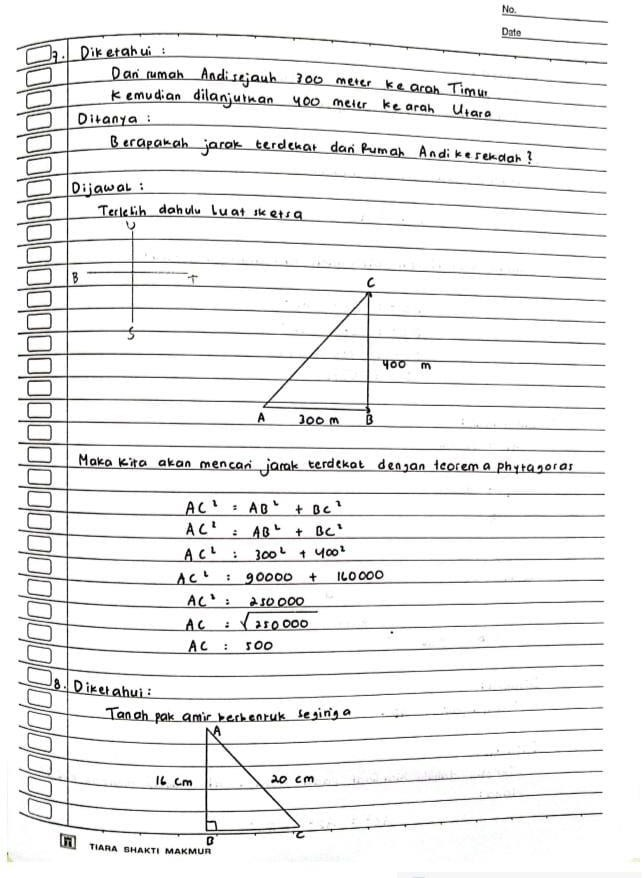 No.
Date
7. Diketahui :
Dari rumah Andi sejauh 300 meter ke arah Timur
Kemudian dilanjutkan 400 meter ke arah Utara
Ditanya :
Berapakah jarak terdekat dari Rumah Andi ke sekolah?
Dijawab :
Terlebih dahulu buat sketsa
U
B T
S
C
400 m
A 300 m B
Maka kita akan mencari jarak terdekat dengan teorema phytagoras
AC² = AB² + BC²
AC² = AB² + BC²
AC² = 300² + 400²
AC² = 90000 + 160000
AC² = 250000
AC = √250000
AC = 500
8. Diketahui :
Tanah pak amir berbentuk segitiga
A
16 cm 20 cm
B C
TIARA BHAKTI MAKMUR